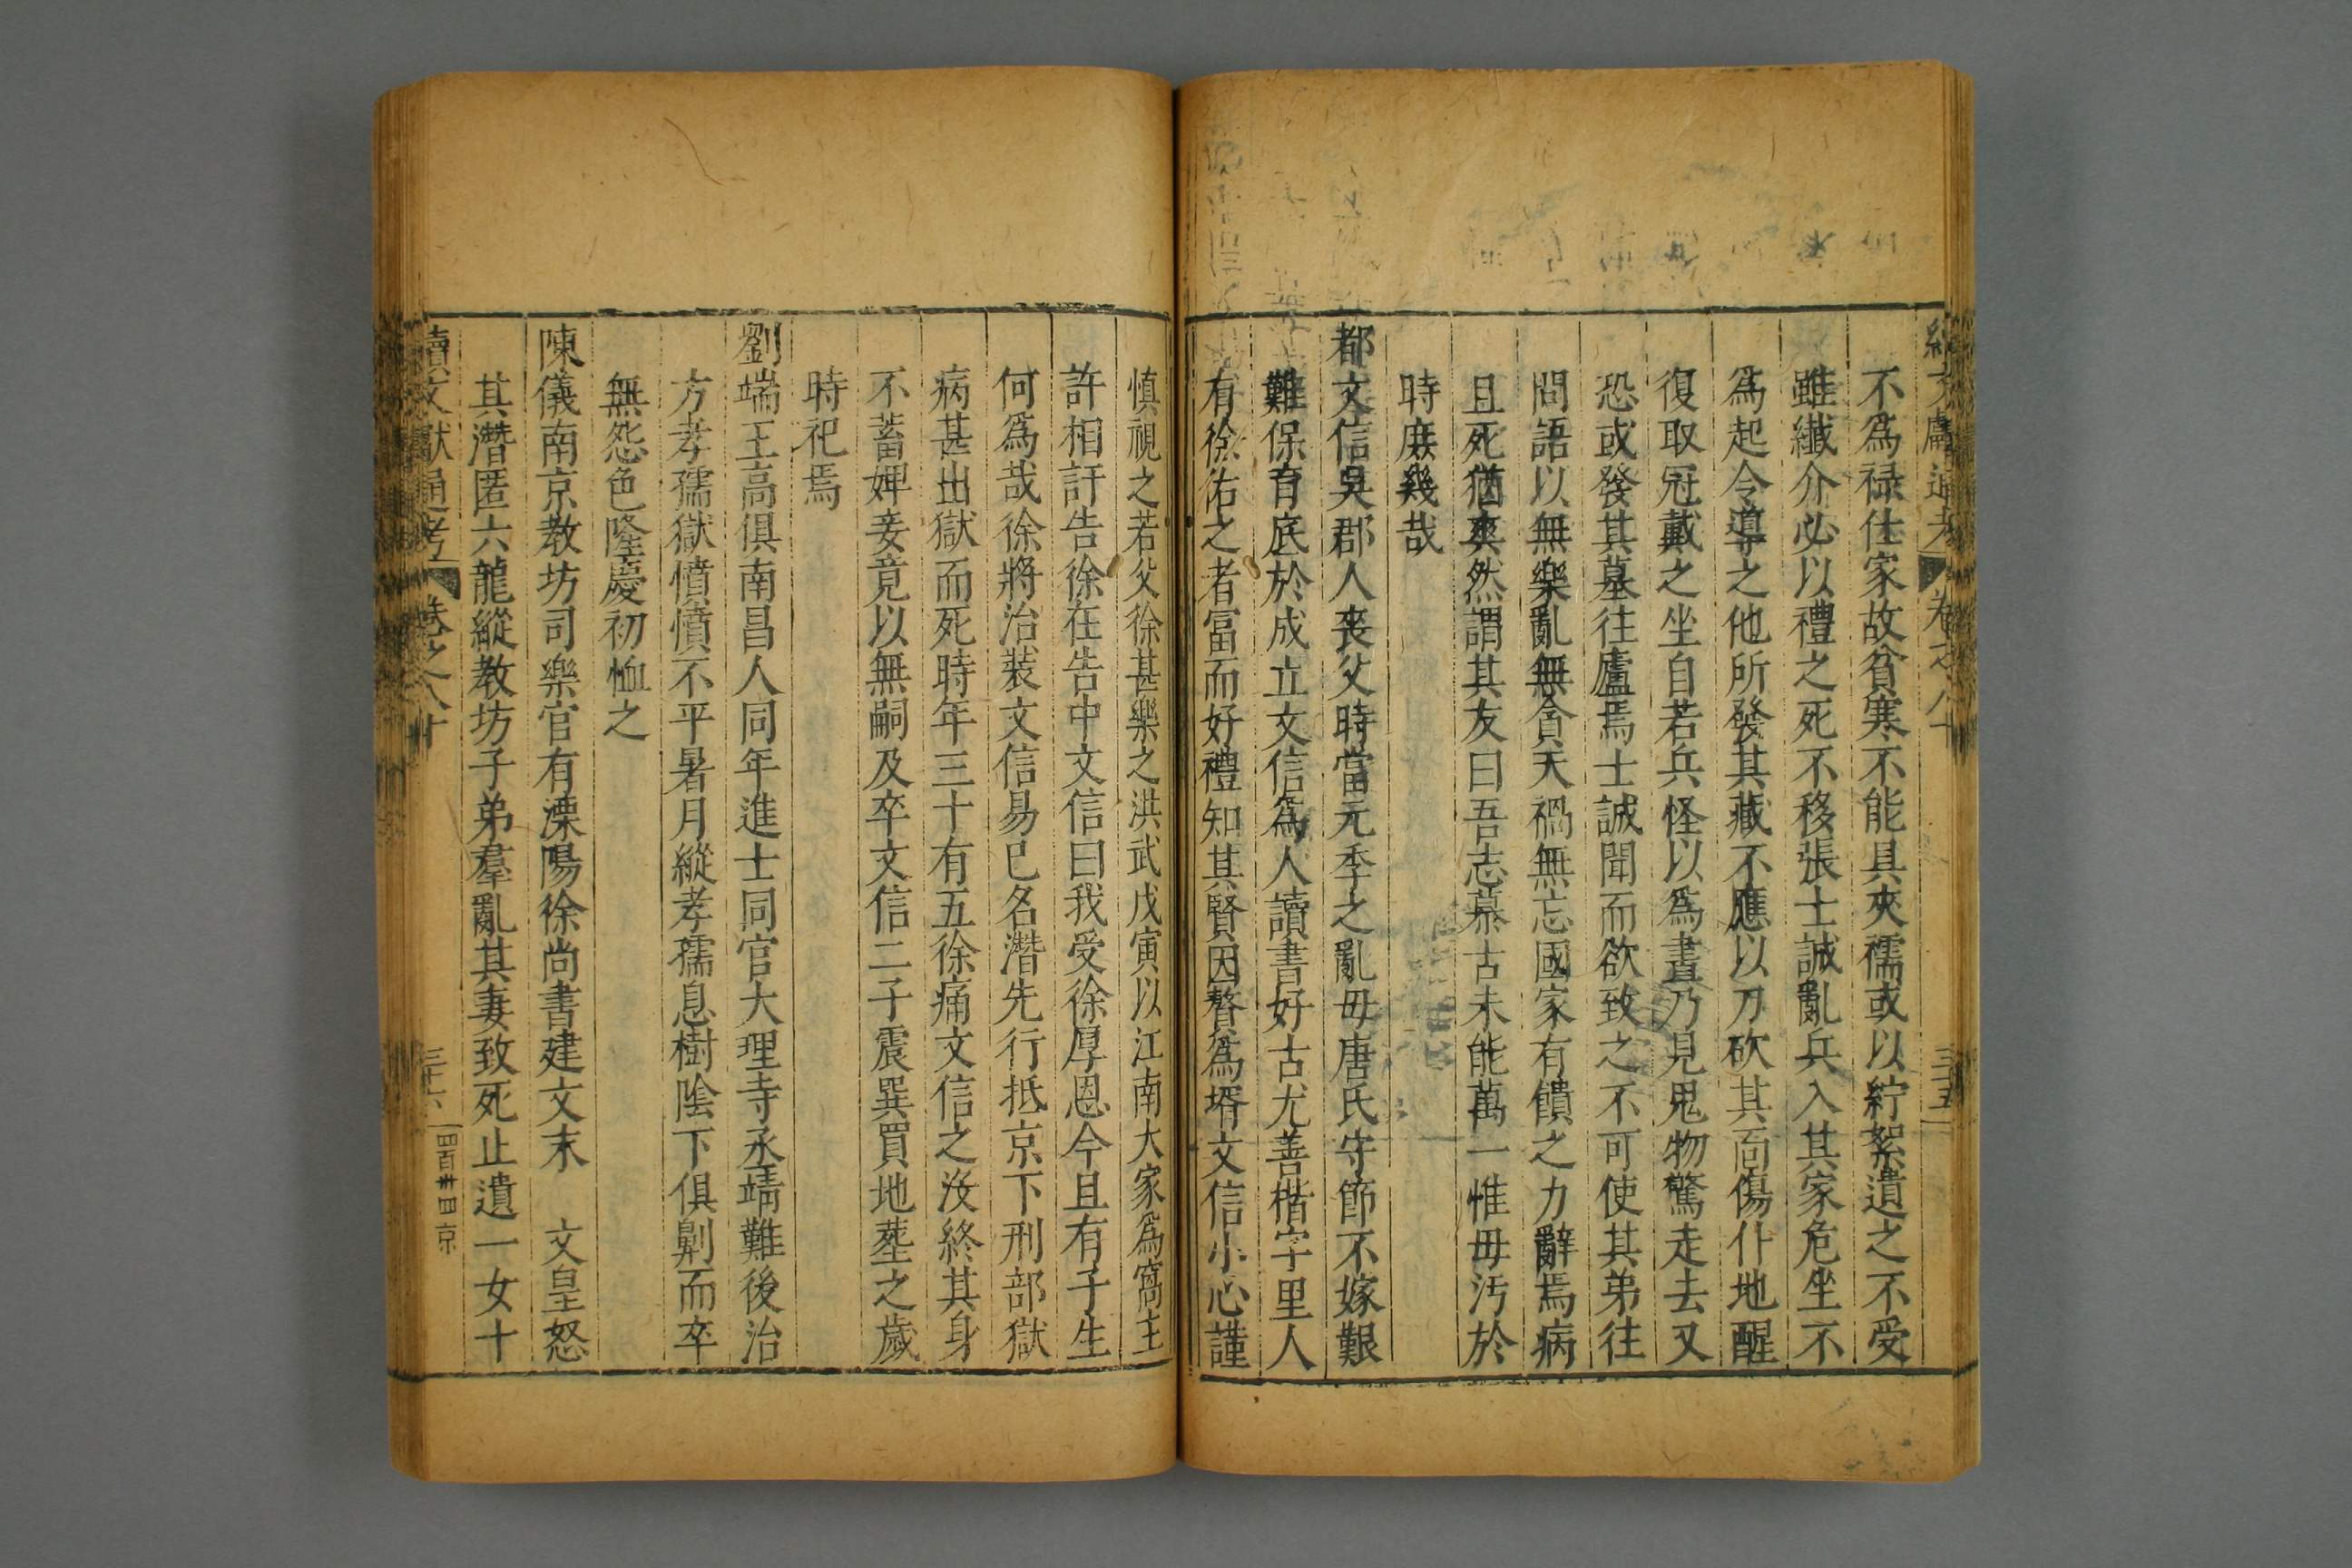 續文獻通考 卷之八十 三十五
不爲祿仕家故貧寒不能具夾襦或以紵絮遺之不受
雖纎介必以禮之死不移張士誠亂兵入其家危坐不
爲起令導之他所發其藏不應以刀砍其面傷仆地醒
復取冠戴之坐自若兵怪以爲晝乃見鬼物驚走去又
恐或發其墓往廬焉士誠聞而欲致之不可使其弟往
問語以無樂亂無貪天禍無忘國家有饋之力辭焉病
且死猶爽然謂其友曰吾志慕古未能萬一惟毋汚於
時庻幾哉
都文信吳郡人喪父時當元季之亂毋唐氏守節不嫁艱
難保育底於成立文信爲人讀書好古尤善楷字里人
有徐佑之者富而好禮知其賢因贅爲壻文信小心謹
慎視之若父徐甚樂之洪武戊寅以江南大家爲窩主
許相訐告徐在告中文信曰我受徐厚恩今且有子生
何爲哉徐將治裝文信易已名潛先行抵京下刑部獄
病甚出獄而死時年三十有五徐痛文信之沒終其身
不蓄婢妾竟以無嗣及卒文信二子震巽買地塟之歲
時祀焉
劉端王高俱南昌人同年進士同官大理寺丞靖難後治
方孝孺獄憤憤不平暑月縱孝孺息樹陰下俱劓而卒
無怨色隆慶初恤之
陳儀南京教坊司樂官有溧陽徐尚書建文末 文皇怒
其潛匿六龍縱教坊子弟羣亂其妻致死止遺一女十
續文獻通考 卷之八十 三十六 四百卅四 京